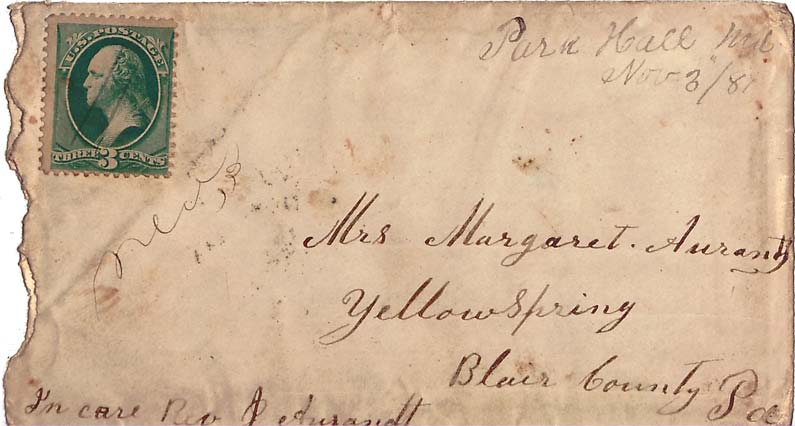 U.S. POSTAGE
THREE 3 CENTS
Park Hall Md
Nov 3/81
Nov 3
Mrs Margaret. Aurandt
YellowSpring
Blair County Pa
In care Rev J Aurandt